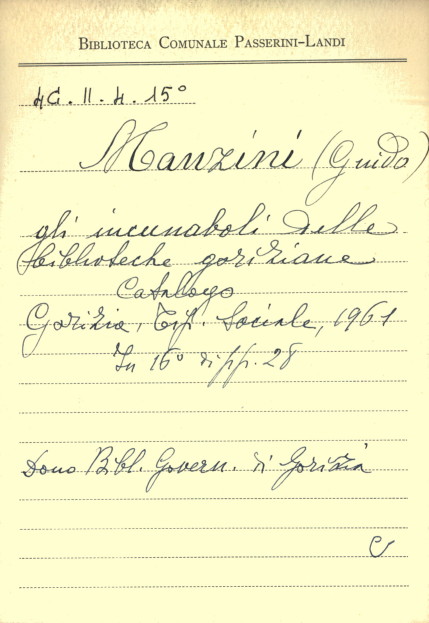 BIBLIOTECA COMUNALE PASSERINI-LANDI
4G. II. 4. 15°
Manzini (Guido)
gli incunaboli delle
biblioteche goriziane
Catalogo
Gorizia, Tip. Sociale, 1961
In 16° di pp. 28
Dono Bibl. Govern. di Gorizia